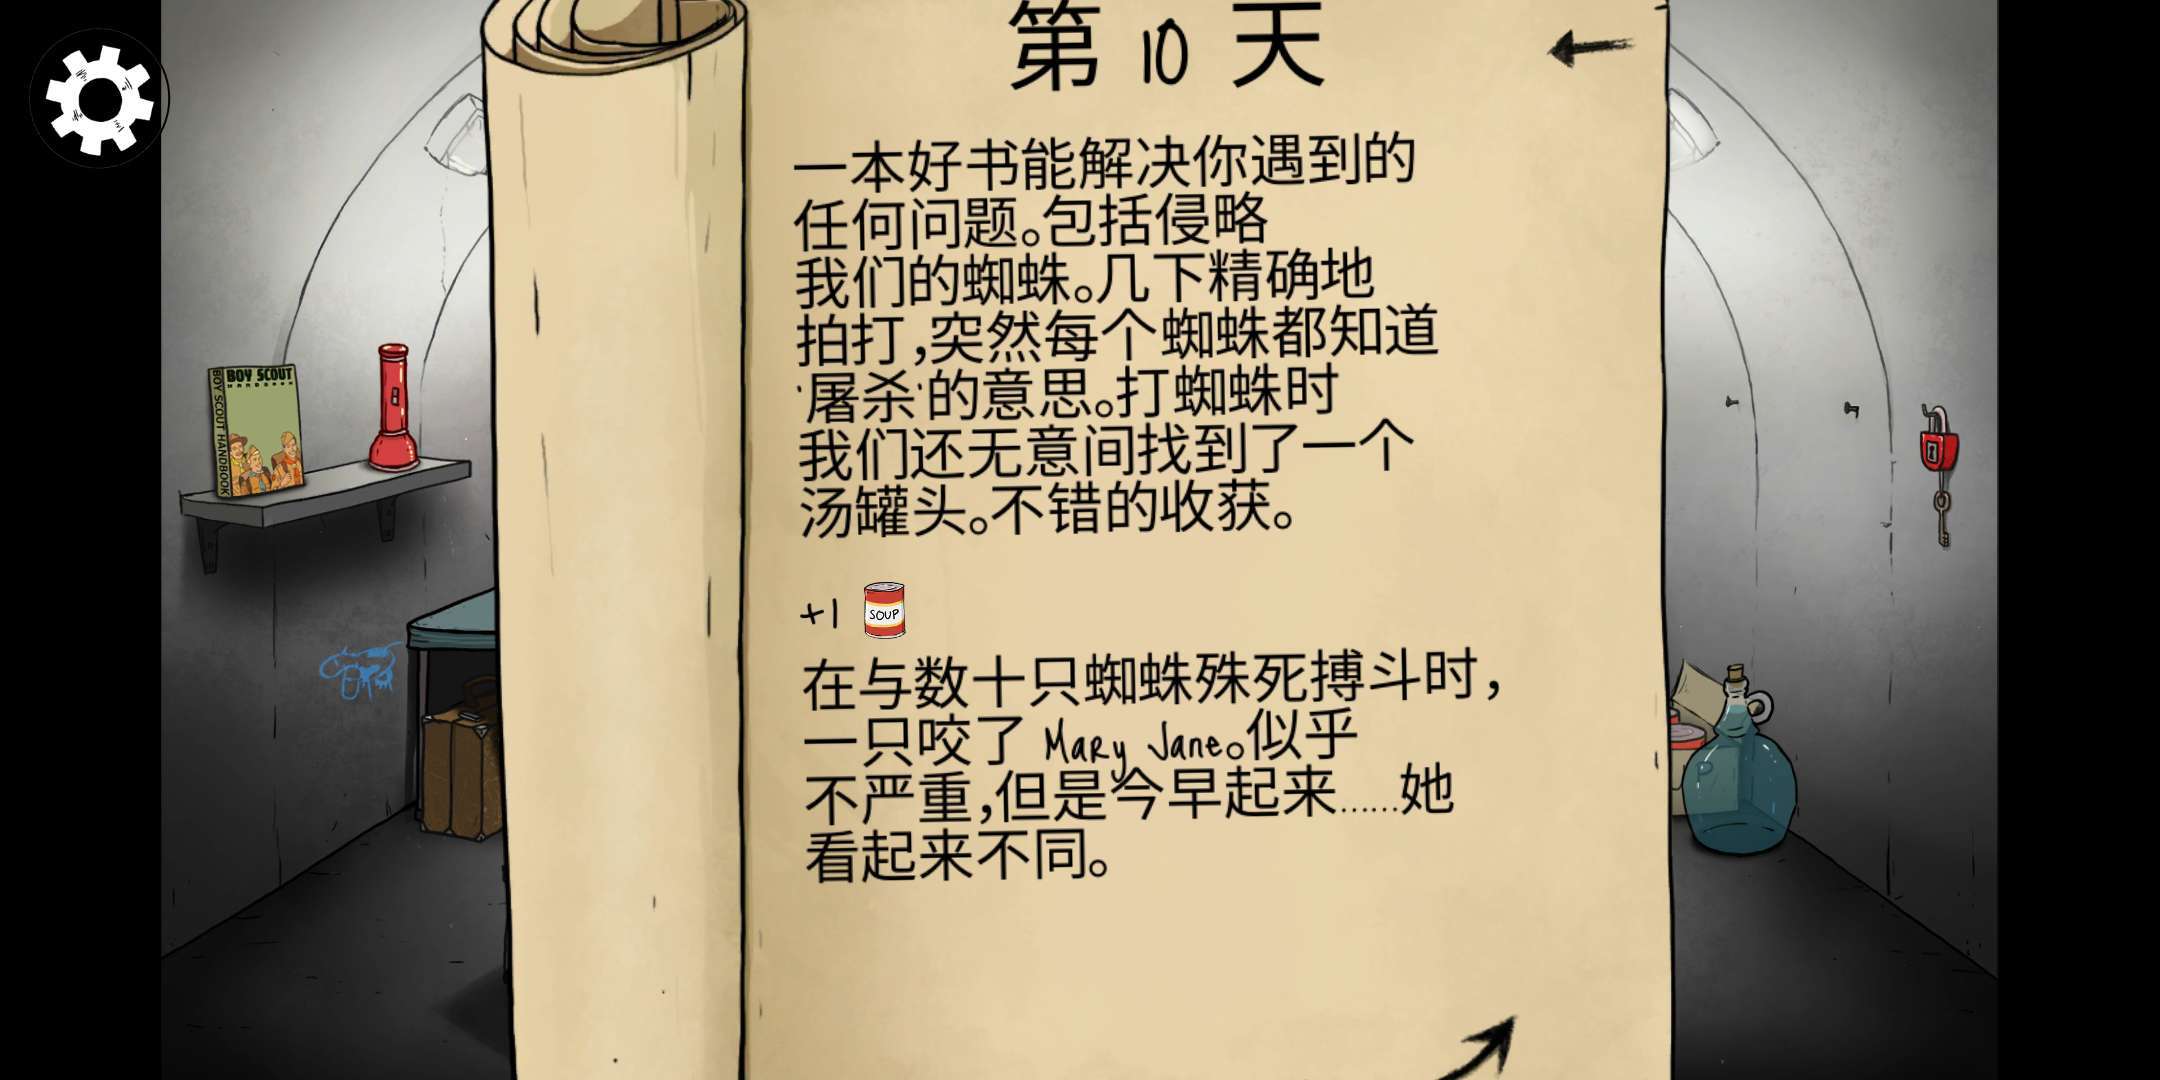 第 10 天
一本好书能解决你遇到的
任何问题。包括侵略
我们的蜘蛛。几下精确地
拍打,突然每个蜘蛛都知道
'屠杀'的意思。打蜘蛛时
我们还无意间找到了一个
汤罐头。不错的收获。
+1
SOUP
在与数十只蜘蛛殊死搏斗时，
一只咬了 Mary Jane。似乎
不严重,但是今早起来……她
看起来不同。
BOY SCOUT
HANDBOOK
BOY SCOUT HANDBOOK